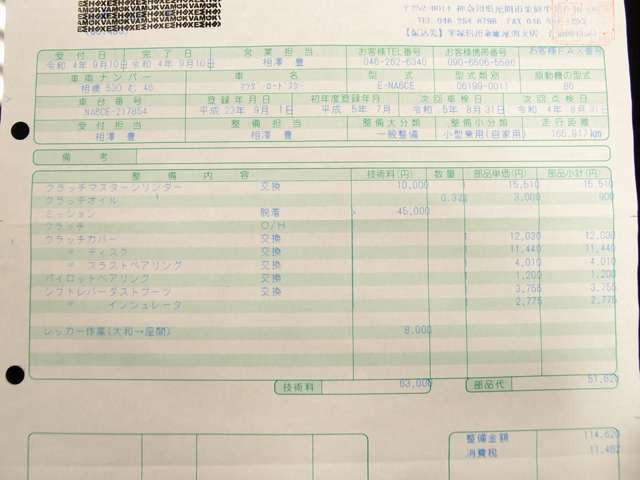 TEL 046 254 8798 FAX 046
受付日 完了日 営業担当 お客様TEL番号 お客様携帯番号 お客様FAX番号
令和 4年 9月10日 令和 4年 9月10日 相澤 豊 046-262-6340 090-6506-5586
車両ナンバー 車名 型式 型式類別 原動機の型式
相模 530 む 46 マツダ ロードスター E-NA6CE 06199-0011 B6
車台番号 登録年月日 初年度登録年月 次回車検日 次回点検日
NA6CE-217854 平成 22年 9月 1日 平成 5年 7月 令和 5年 8月31日 令和 4年 8月31日
受付担当 整備担当 整備大分類 整備小分類 走行距離
相澤 豊 相澤 豊 一般整備 小型乗用(自家用) 165,917km
備考
整備内容 技術料(円) 数量 部品単価(円) 部品小計(円)
クラッチマスターシリンダー 交換 10,000 1 15,510 15,510
クラッチオイル 3,000 900
ミッション 脱着 45,000
クラッチ O/H
クラッチカバー 交換 1 12,030 12,030
〃 ディスク 交換 1 11,440 11,440
〃 スラストベアリング 交換 1 4,010 4,010
パイロットベアリング 交換 1 1,200 1,200
シフトレバーダストブーツ 交換 1 3,755 3,755
〃 インシュレータ 1 2,775 2,775
レッカー作業(大和→座間) 8,000
技術料 63,000 部品代 51,620
整備金額 114,620
消費税 11,462